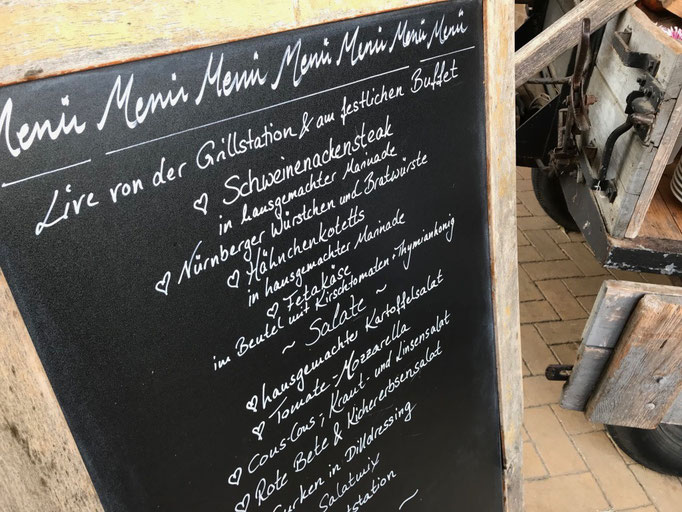 Menü Menü Menü Menü Menü Menü Menü
Live von der Grillstation & am festlichen Buffet
♡ Schweinenackensteak
in hausgemachter Marinade
♡ Nürnberger Würstchen und Bratwürste
♡ Hähnchenkotetts
in hausgemachter Marinade
♡ Fetakäse
im Beutel mit Kirschtomaten + Thymianhonig
~ Salate ~
♡ hausgemachter Kartoffelsalat
♡ Tomate-Mozzarella
♡ Cous-Cous-, Kraut- und Linsensalat
♡ Rote Bete & Kichererbsensalat
Gurken in Dilldressing
Salatmix